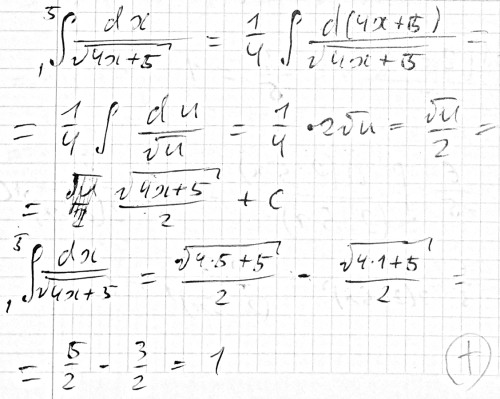 ₁⁵∫ dx/√(4x+5) = 1/4 ∫ d(4x+5)/√(4x+5) =
= 1/4 ∫ du/√u = 1/4 · 2√u = √u/2 =
= √(4x+5)/2 + C
₁⁵∫ dx/√(4x+5) = √(4·5+5)/2 - √(4·1+5)/2 =
= 5/2 - 3/2 = 1 (+)